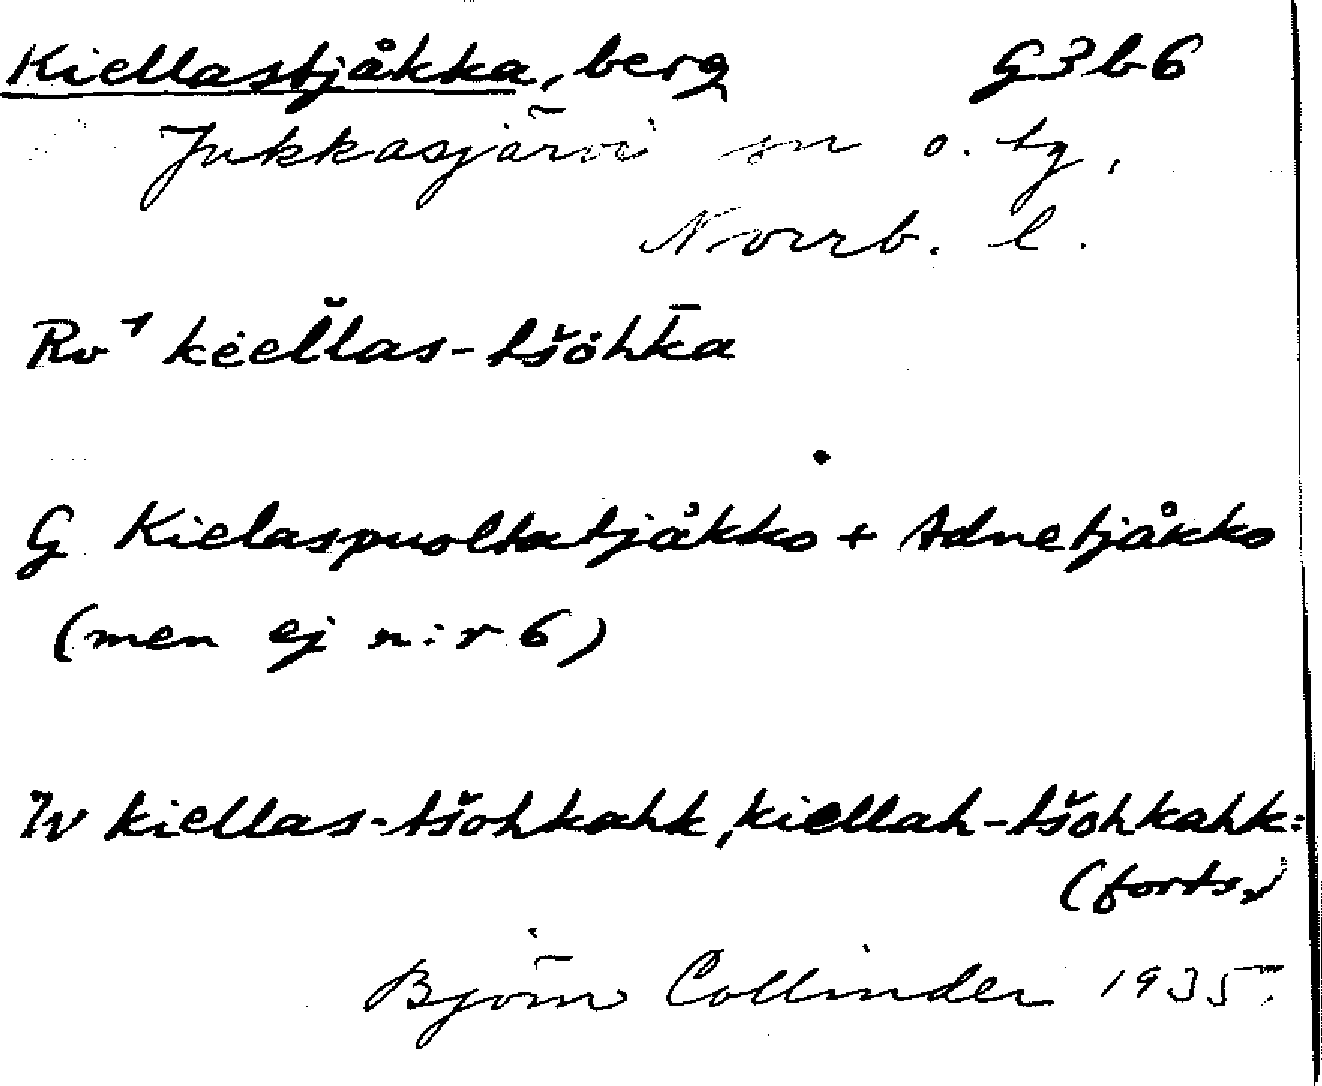 Kiellastjåkka, berg G3b6
Jukkasjärvi sn o. tg,
Norrb. l.
Rv¹ kiell̆as-tšöhk̄a
G Kielaspuoltatjåkko + Adnetjåkko
(men ej n:r 6)
W kiellas-tšohkahk, kiellah-tšohkahk:
(forts.)
Björn Collinder 1935.